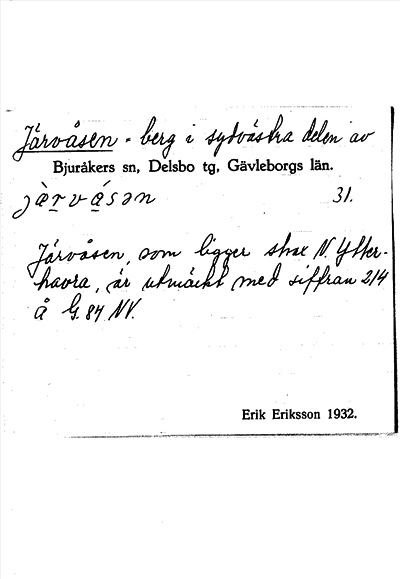 Järvåsen - berg i sydvästra delen av
Bjuråkers sn, Delsbo tg, Gävleborgs län.
jä̀rvǻsən 31.
Järvåsen, som ligger strax N. Ytter-
havra, är utmärkt med siffran 214
å G. 84 NV.
Erik Eriksson 1932.